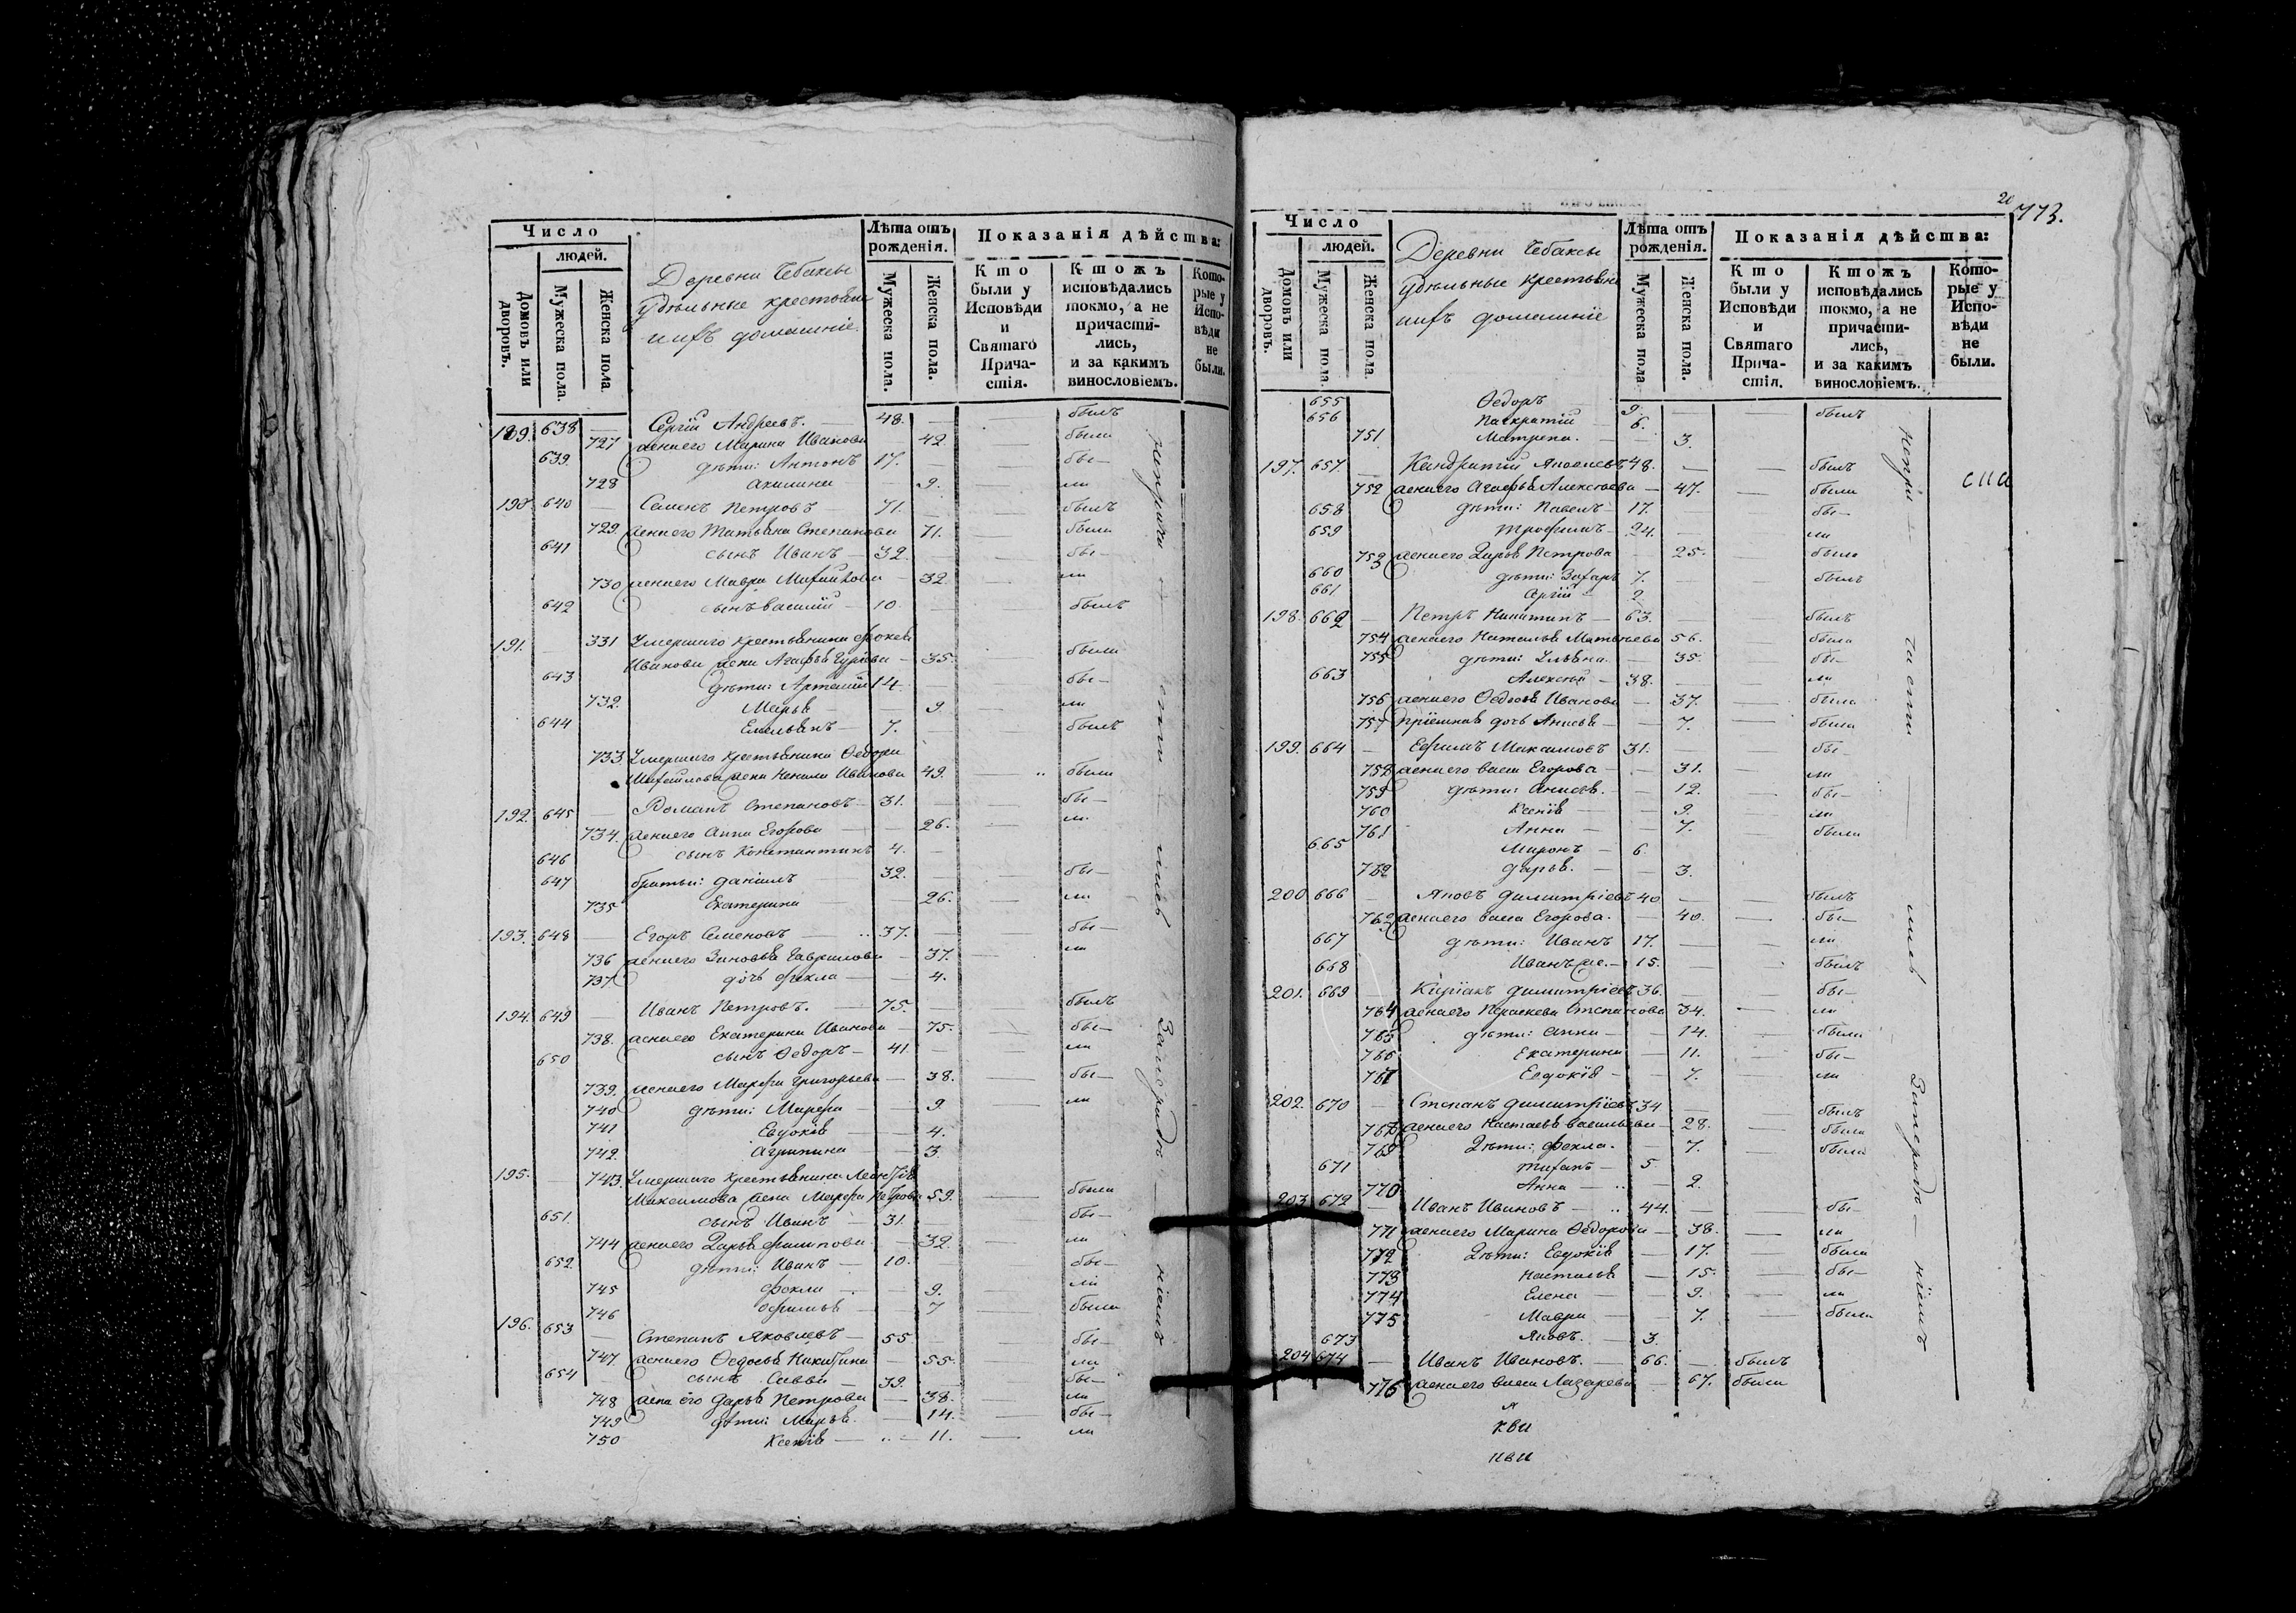 Число
людей.
Домовъ или дворовъ.
Мужеска пола.
Женска пола.
Деревни Чебаксы
удѣльные крестьяне
ихъ домашніе.
Лѣта отъ рожденія.
Мужеска пола.
Женска пола.
Показанія дѣйства:
Кто были у Исповѣди и Святаго Причастія.
Ктожъ исповѣдались токмо, а не причастились, и за какимъ винословіемъ.
Которые у Исповѣди не были.
189. 638 — Сергій Андреевъ. 48. — — былъ
727 жена его Марина Иванова 42. — была
639. дѣти: Антонъ 17. — — бы—
728 Акилина — 9. — ли
190 640 — Семенъ Петровъ 71. — — былъ
729. жена его Татьяна Степанова 71. — была
641 сынъ Иванъ — 32. — — бы—
730 жена его Мавра Михайлова — 32. — ли
642 сынъ Василій — 10. — — былъ
191. — 331 Умершаго крестьянина Фокея
Иванова жена Агафья Гурьева — 35. — была
643 дѣти: Артемій 14. — — бы—
732. Марья — 9. — ли
644 Емельянъ — 7. — — былъ
733 Умершаго крестьянина Ѳедора
Михайлова жена Ненила Иванова 49. была
192. 645 Романъ Степановъ — 31. — — бы—
734. жена его Анна Егорова — 26. — ли
646 сынъ Константинъ 4. —
647 братья: Даніилъ 32. — — бы—
735 Екатерина — 26. — ли
193. 648 — Егоръ Семеновъ — 37. — — бы—
736 жена его Зиновья Гаврилова — 37. — ли
737 дочь Фекла — 4.
194. 649 — Иванъ Петровъ. — 75. — — былъ
738. жена его Екатерина Иванова — 75. — бы—
650 сынъ Ѳедоръ — 41. — — ли
739. жена его Марфа Григорьева — 38. — бы—
740 дѣти: Марфа — 9. — ли
741 Евдокія — 4.
742. Агрипина — 3.
195. — 743. Умершаго крестьянина Леонтія
Максимова жена Марфа Петрова 59. — была
651. сынъ Иванъ — 31. — — бы—
744 жена его Дарья Филипова — 32. — ли
652 дѣти: Иванъ — 10. — — бы—
745 Фекла — 9. — ли
746 Офимья — 7 — была
196. 653 — Степанъ Яковлевъ — 55 — — бы—
747. жена его Ѳедосья Никитина — 55. — ли
654 сынъ Савва — 39. — — бы—
748 жена его Дарья Петрова — 38. — ли
749 дѣти: Марья. — 14. — бы—
750 Ксенія — 11. — ли
20
773.
Число
людей.
Домовъ или дворовъ.
Мужеска пола.
Женска пола.
Деревни Чебаксы
удѣльные крестьяне
ихъ домашніе
Лѣта отъ рожденія.
Мужеска пола
Женска пола.
Показанія дѣйства:
Кто были у Исповѣди и Святаго Причастія.
Ктожъ исповѣдались токмо, а не причастились, и за какимъ винословіемъ.
Которые у Исповѣди не были.
655 Ѳедоръ — 9. — былъ
656 Панкратій — 6.
751 Матрена. — 3.
197. 657. — Кандратій 48. — — былъ
752 жена его Агафья Алексѣева — 47. — была
658 дѣти: Павелъ — 17. — бы—
659 Трофимъ — 24. — ли
753 жена его Дарья Петрова — 25. была
660 дѣти: Захаръ 7. — былъ
661 Сергій — 2.
198. 662 — Петръ Никитинъ — 63. — былъ
754 жена его Наталья Матвѣева 56. была
755 дѣти: Ульяна. — 35. — бы—
663 Алексѣй — 38. — — ли
756 жена его Ѳедосья Иванова — 37. — была
757 пріемная дочь Анисья — 7. — была
199. 664 — Ефимъ Максимовъ 31. — — бы—
758 жена его Васса Егорова — 31. — ли
759 дѣти: Анисья. — 12. — бы—
760 Ксенія — 9. — ли
761 Анна — 7. — была
665 Миронъ — 6.
762 Дарья. — 3.
200 666 — Яковъ Димитріевъ 40 — — былъ
762 жена его Васса Егорова. — 40. — бы—
667 дѣти: Иванъ 17. — — ли
668 Иванъ же. — 15. — былъ
201. 669 Киріакъ Димитріевъ 36. — — бы—
764 жена его Параскева Степанова 34. — ли
765 дѣти: Анна — 14. — была
766 Екатерина — 11. — бы—
767 Евдокія — 7. — ли
202. 670 — Степанъ Димитріевъ 34 — — былъ
жена его Настасья Васильева — 28. — была
769 Дѣти: Фекла. — 7. — была
671 Тихонъ — 5.
770 Анна — 2.
203 672 — Иванъ Ивановъ — 44. — — бы—
771 жена его Марина Ѳедорова — 38. — ли
772 Дѣти: Евдокія — 17. — была
773 Наталья — 15. — бы—
774 Елена — 9. — ли
775 Мавра — 7. — была
673 Яковъ. — 3.
204 674 — Иванъ Ивановъ. — 66. — былъ
776 жена его Васса Лазарева — 67. была